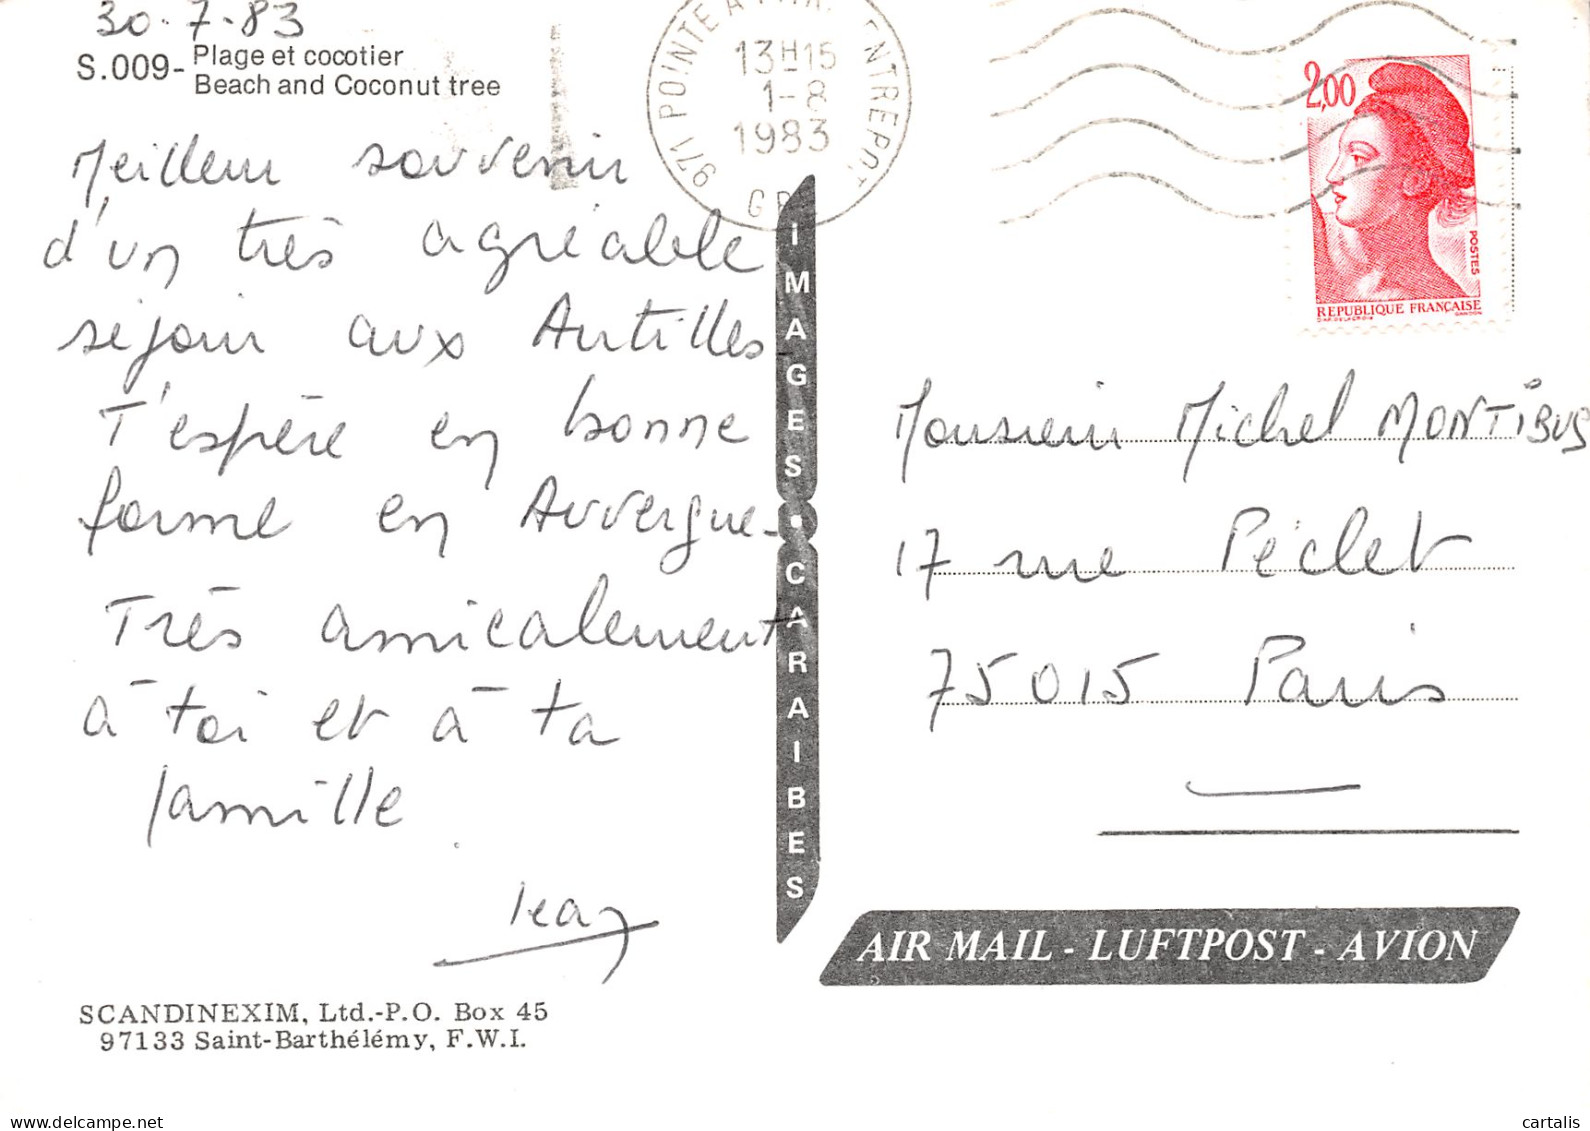 30-7-83
S.009- Plage et cocotier
Beach and Coconut tree
Meilleur souvenir
d'un très agréable
séjour aux Antilles
T'espère en bonne
forme en Auvergne-
Très amicalement
à toi et à ta
famille.
Jean
SCANDINEXIM, Ltd.-P.O. Box 45
97133 Saint-Barthélémy, F.W.I.
971 POINTE A ENTREPOT
13H15
1-8
1983
IMAGES • CARAIBES
2,00
POSTES
REPUBLIQUE FRANÇAISE
D'AP. DELACROIX GANDON
Monsieur Michel MONTIBUS
17 rue Péclet
75015 Paris
AIR MAIL - LUFTPOST - AVION
cartalis